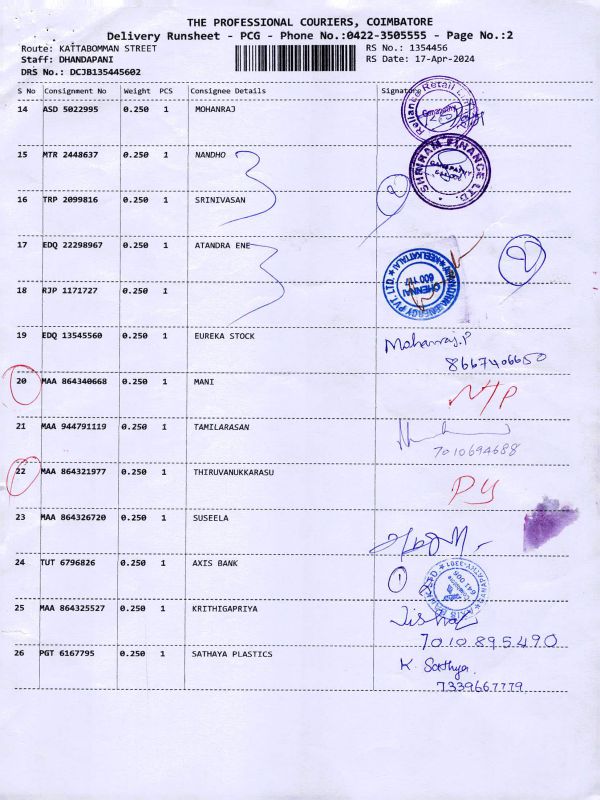 THE PROFESSIONAL COURIERS, COIMBATORE
Delivery Runsheet - PCG - Phone No.:0422-3505555 - Page No.:2
Route: KATTABOMMAN STREET
RS No.: 1354456
Staff: DHANDAPANI
RS Date: 17-Apr-2024
DRS No.: DCJB135445602
S No Consignment No Weight PCS Consignee Details Signature
14 ASD 5022995 0.250 1 MOHANRAJ
Reliance Retail
15 MTR 2448637 0.250 1 NANDHO
SHRIRAM FINANCE LTD.
16 TRP 2099816 0.250 1 SRINIVASAN
2
17 EDQ 22298967 0.250 1 ATANDRA ENE
2
18 RJP 1171727 0.250 1
ENERGY PVT. LTD. ★ KEELKATTALAI ★
CHENNAI
600 117
19 EDQ 13545560 0.250 1 EUREKA STOCK
Mohanraj.P
8667406650
20 MAA 864340668 0.250 1 MANI
N/P
21 MAA 944791119 0.250 1 TAMILARASAN
7010694688
22 MAA 864321977 0.250 1 THIRUVANUKKARASU
PY
23 MAA 864326720 0.250 1 SUSEELA
24 TUT 6796826 0.250 1 AXIS BANK
1
641 006
25 MAA 864325527 0.250 1 KRITHIGAPRIYA
7010895490
26 PGT 6167795 0.250 1 SATHAYA PLASTICS
K. Sathya
7339667779